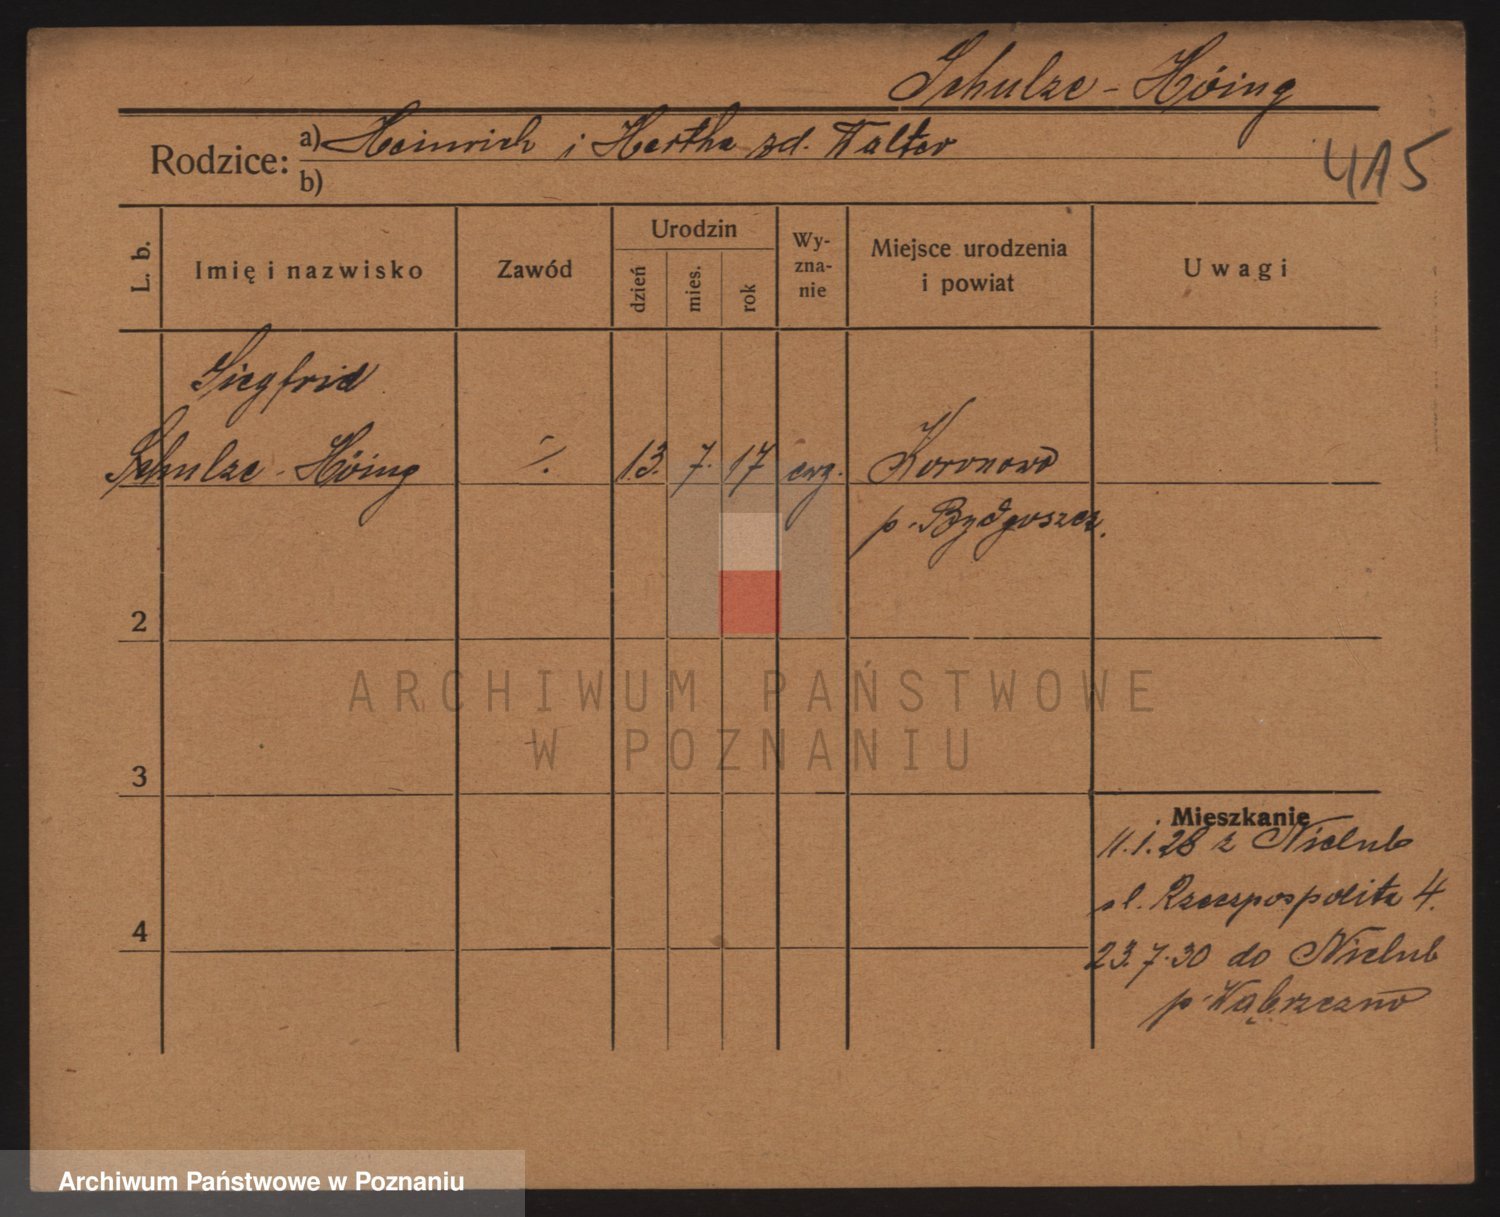 Schulze - Höing
Rodzice: a) Heinrich i Hertha zd. Walter
b)
415
L. b.
Imię i nazwisko
Zawód
Urodzin
dzień
mies.
rok
Wy-
zna-
nie
Miejsce urodzenia
i powiat
Uwagi
Siegfrid
Schulze - Höing
%.
13. 7. 17
ewg.
Koronowo
p. Bydgoszcz.
2
3
4
Mieszkanie
11.1.28 z Nielub
ul. Rzeczpospolita 4.
23.7.30 do Nielub
p. Wąbrzeźno
ARCHIWUM PAŃSTWOWE
W POZNANIU
Archiwum Państwowe w Poznaniu